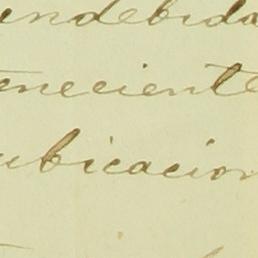 indebida
teneciente
ubicacion